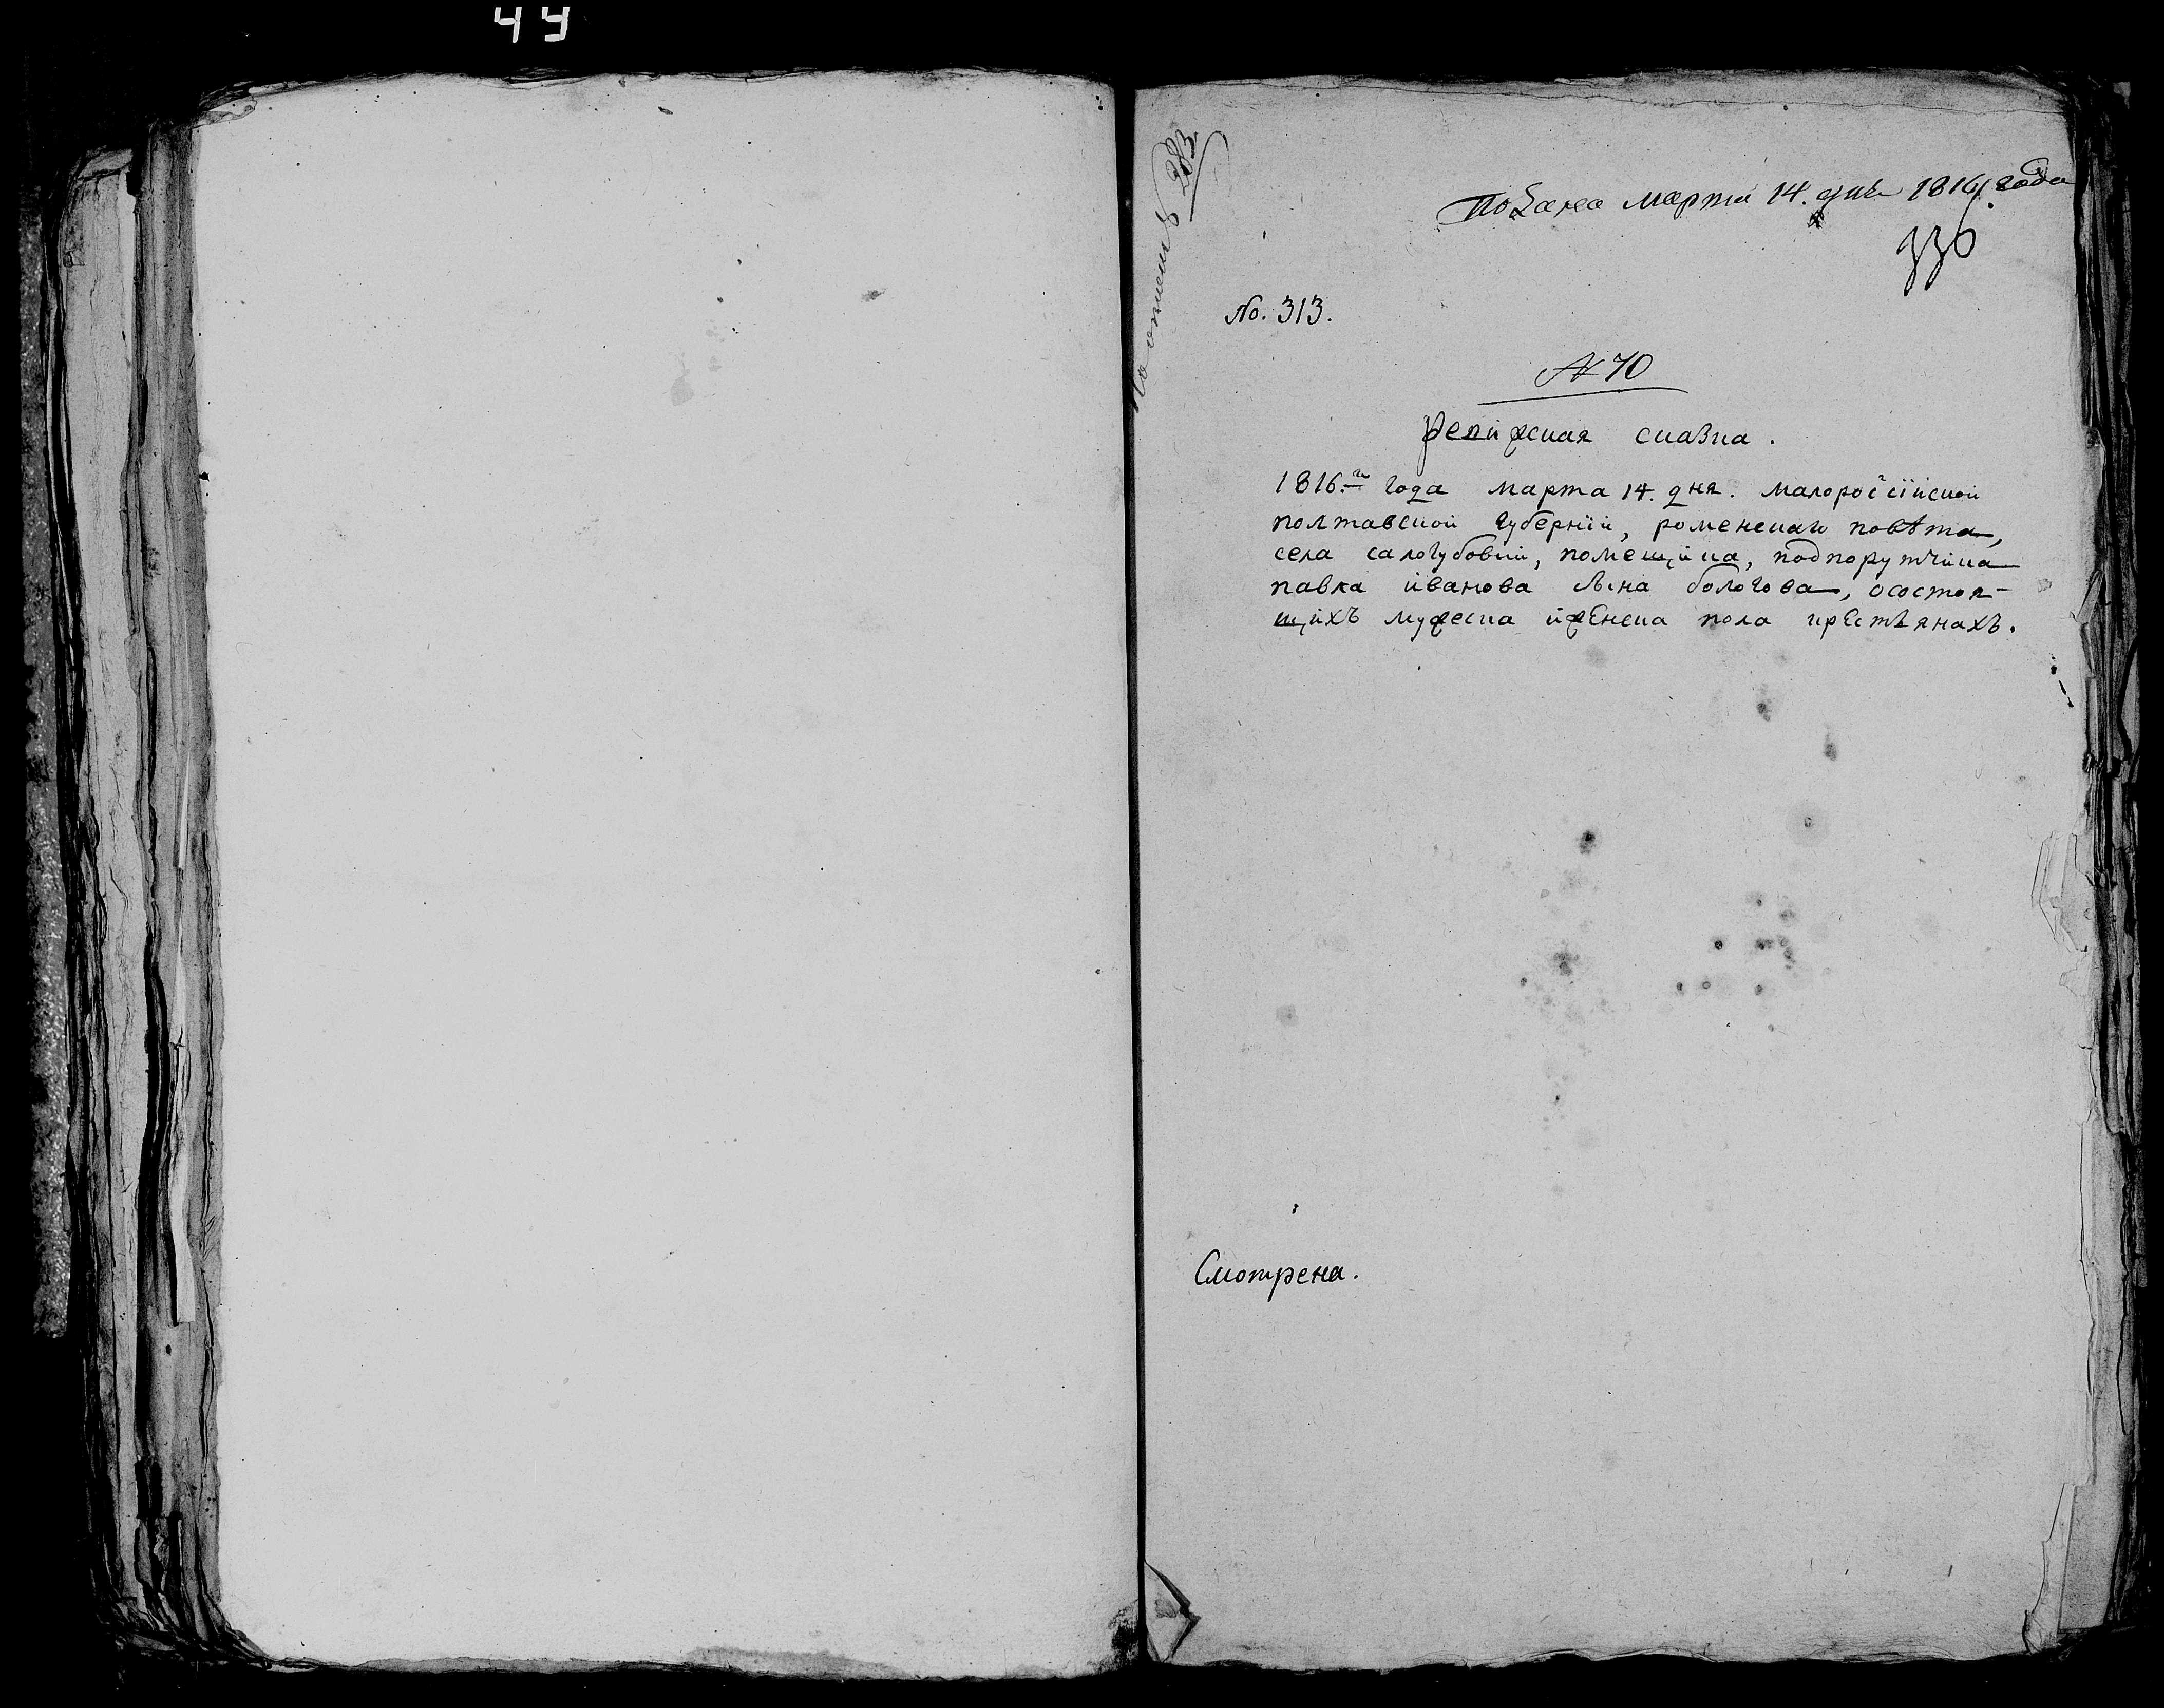 44
По описи 283
Подана марта 14. дня 1816. года
336
No. 313.
№ 70
Ревижская сказка.
1816.го года марта 14. дня. малоросїйской
полтавской губернїи, роменскаго повѣта,
села салогубовки, помещика, подпорутчика
павла иванова сына бологова, осостоя-
щихъ мужеска иженска пола крестьянахъ.
Смотрена.